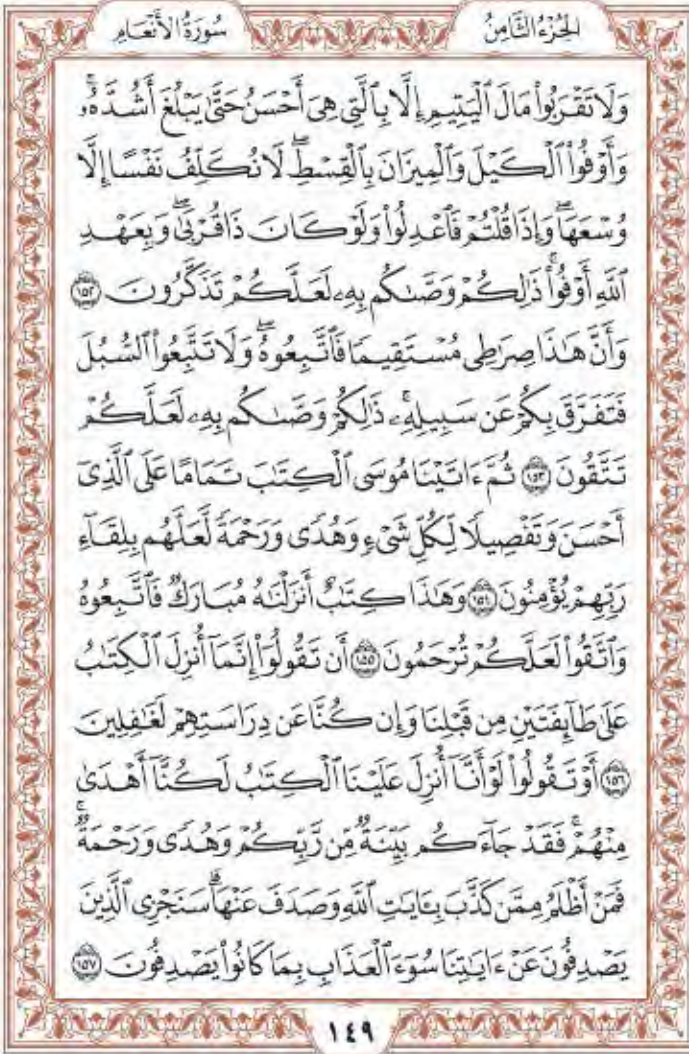 الجُزْءُ الثَّامِنُ سُورَةُ الأَنْعَامِ
وَلَا تَقْرَبُوا۟ مَالَ ٱلْيَتِيمِ إِلَّا بِٱلَّتِى هِىَ أَحْسَنُ حَتَّىٰ يَبْلُغَ أَشُدَّهُۥۚ
وَأَوْفُوا۟ ٱلْكَيْلَ وَٱلْمِيزَانَ بِٱلْقِسْطِۖ لَا نُكَلِّفُ نَفْسًا إِلَّا
وُسْعَهَاۖ وَإِذَا قُلْتُمْ فَٱعْدِلُوا۟ وَلَوْ كَانَ ذَا قُرْبَىٰۖ وَبِعَهْدِ
ٱللَّهِ أَوْفُوا۟ۚ ذَٰلِكُمْ وَصَّىٰكُم بِهِۦ لَعَلَّكُمْ تَذَكَّرُونَ ١٥٢
وَأَنَّ هَٰذَا صِرَٰطِى مُسْتَقِيمًا فَٱتَّبِعُوهُۖ وَلَا تَتَّبِعُوا۟ ٱلسُّبُلَ
فَتَفَرَّقَ بِكُمْ عَن سَبِيلِهِۦۚ ذَٰلِكُمْ وَصَّىٰكُم بِهِۦ لَعَلَّكُمْ
تَتَّقُونَ ١٥٣ ثُمَّ ءَاتَيْنَا مُوسَى ٱلْكِتَٰبَ تَمَامًا عَلَى ٱلَّذِىٓ
أَحْسَنَ وَتَفْصِيلًا لِّكُلِّ شَىْءٍ وَهُدًى وَرَحْمَةً لَّعَلَّهُم بِلِقَآءِ
رَبِّهِمْ يُؤْمِنُونَ ١٥٤ وَهَٰذَا كِتَٰبٌ أَنزَلْنَٰهُ مُبَارَكٌ فَٱتَّبِعُوهُ
وَٱتَّقُوا۟ لَعَلَّكُمْ تُرْحَمُونَ ١٥٥ أَن تَقُولُوٓا۟ إِنَّمَآ أُنزِلَ ٱلْكِتَٰبُ
عَلَىٰ طَآئِفَتَيْنِ مِن قَبْلِنَا وَإِن كُنَّا عَن دِرَاسَتِهِمْ لَغَٰفِلِينَ
١٥٦ أَوْ تَقُولُوا۟ لَوْ أَنَّآ أُنزِلَ عَلَيْنَا ٱلْكِتَٰبُ لَكُنَّآ أَهْدَىٰ
مِنْهُمْۚ فَقَدْ جَآءَكُم بَيِّنَةٌ مِّن رَّبِّكُمْ وَهُدًى وَرَحْمَةٌۚ
فَمَنْ أَظْلَمُ مِمَّن كَذَّبَ بِـَٔايَٰتِ ٱللَّهِ وَصَدَفَ عَنْهَاۗ سَنَجْزِى ٱلَّذِينَ
يَصْدِفُونَ عَنْ ءَايَٰتِنَا سُوٓءَ ٱلْعَذَابِ بِمَا كَانُوا۟ يَصْدِفُونَ ١٥٧
١٤٩